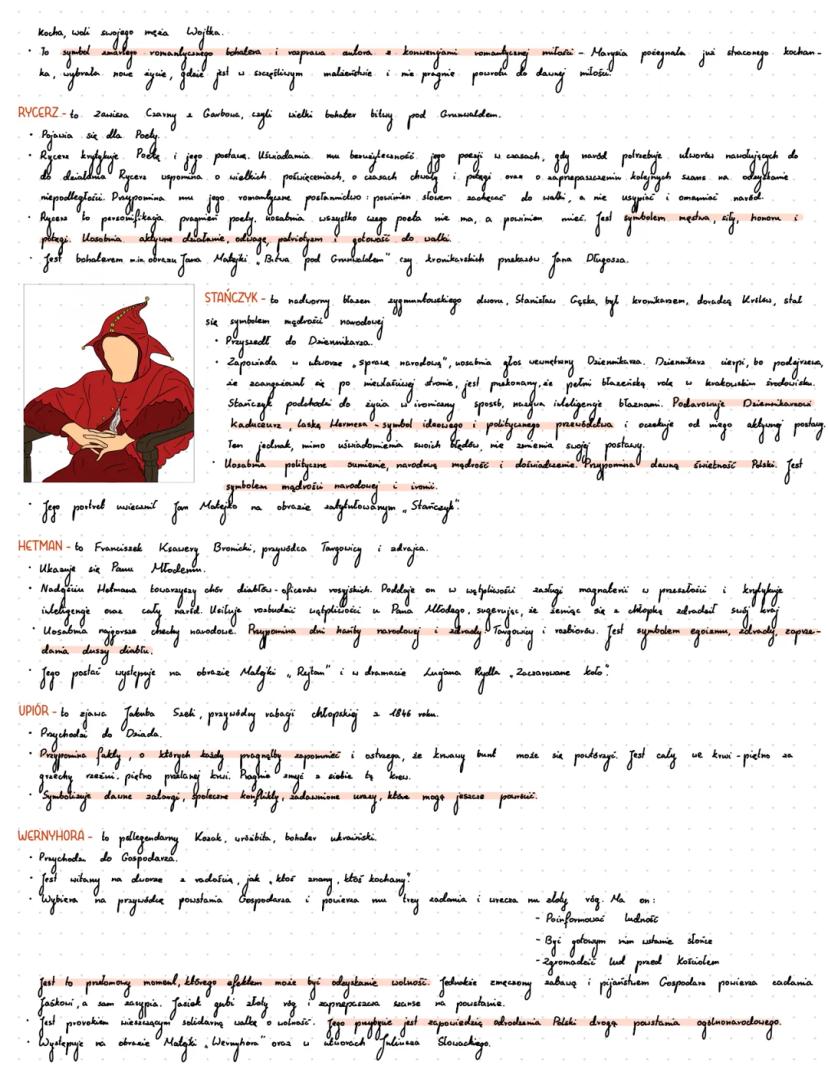 kocha, woli swojego męża Wojtka.
• To symbol zmarłego romantycznego bohatera i rozprawa autora z konwenjami romantycznej miłości - Marysia pożegnała już straconego kochan-
ka, wybrała nowe życie, gdzie jest w szczęśliwym małżeństwie i nie pragnie powrotu do dawnej miłości.
RYCERZ - to Zawisza Czarny z Garbowa, czyli wielki bohater bitwy pod Grunwaldem.
• Pojawia się dla Poety.
• Rycerz krytykuje Poetę i jego postawę. Uświadamia mu bezużyteczność jego poezji w czasach, gdy naród potrzebuje utworów nawołujących do
do działania Rycerz wspomina o wielkich poświęceniach, o czasach chwały i potęgi oraz o zaprzepaszczeniu kolejnych szans na odzyskanie
niepodległości. Przypomina mu jego romantyczne posłannictwo: powinien słowem zachęcać do walki, a nie usypiać i omamiać naród.
• Rycerz to personifikacja pragnień poety, uosabnia wszystko czego poeta nie ma, a powinien mieć. Jest symbolem męstwa, siły, honoru i
potęgi. Uosabnia aktywne działanie, odwagę, patriotyzm i gotowość do walki.
• Jest bohaterem m.in. obrazu Jana Matejki „Bitwa pod Grunwaldem" czy kronikarskich przekazów Jana Długosza.
STAŃCZYK - to nadworny błazen zygmuntowskiego dworu, Stanisław Gąska, był kronikarzem, doradcą królów, stał
się symbolem mądrości narodowej
• Przyszedł do Dziennikarza.
• Zapowiada w utworze „sprawę narodową", uosabnia głos wewnętrzny Dziennikarza. Dziennikarz cierpi, bo podejrzewa,
że zaangażował się po niewłaściwej stronie, jest przekonany, że pełni błazeńską rolę w krakowskim środowisku.
Stańczyk podchodzi do życia w ironiczny sposób, nazywa inteligencję błaznami. Podarowuje Dziennikarzowi
Kaduceusz, laskę Hermesa - symbol ideowego i politycznego przywództwa i oczekuje od niego aktywnej postawy.
Ten jednak, mimo uświadomienia swoich błędów, nie zmienia swojej postawy.
• Uosabnia polityczne sumienie, narodową mądrość i doświadczenie. Przypomina dawną świetność Polski. Jest
symbolem mądrości narodowej i ironii.
• Jego portret uwiecznił Jan Matejko na obrazie zatytułowanym „Stańczyk".
HETMAN - to Franciszek Ksawery Branicki, przywódca Targowicy i zdrajca.
• Ukazuje się Panu Młodemu.
• Nadejściu Hetmana towarzyszy chór diabłów-oficerów rosyjskich. Poddaje on w wątpliwości zasługi magnaterii w przeszłości i krytykuje
inteligencję oraz cały naród. Usiłuje rozbudzić wątpliwości u Pana Młodego, sugerując, że żeniąc się z chłopką zdradził swój kraj
• Uosabnia najgorsze cechy narodowe. Przypomina dni hańby narodowej i zdrady: Targowicy i rozbiorów. Jest symbolem egoizmu, zdrady, zaprze-
dania duszy diabłu.
• Jego postać występuje na obrazie Matejki „Rejtan" i w dramacie Lucjana Rydla „Zaczarowane koło".
UPIÓR - to zjawa Jakuba Szeli, przywódcy rabacji chłopskiej z 1846 roku.
• Przychodzi do Dziada.
• Przypomina fakty, o których każdy pragnąłby zapomnieć i ostrzega, że krwawy bunt może się powtórzyć. Jest cały we krwi - piętno za
grzechy rzezi, piętno przelanej krwi. Pragnie zmyć z siebie tę krew.
• Symbolizuje dawne zatargi, społeczne konflikty, zadawnione urazy, które mogą jeszcze powrócić.
WERNYHORA - to półlegendarny Kozak, wróżbita, bohater ukraiński.
• Przychodzi do Gospodarza.
• Jest witany na dworze z radością, jak „ktoś znany, ktoś kochany".
• Wybiera na przywódcę powstania Gospodarza i powierza mu trzy zadania i wręcza mu złoty róg. Ma on:
- Poinformować ludność
- Być gotowym nim wstanie słońce
- Zgromadzić lud przed Kościołem
Jest to przełomowy moment, którego efektem może być odzyskanie wolności. Jednakże zmęczony zabawą i pijaństwem Gospodarz powierza zadania
Jaśkowi, a sam zasypia. Jasiek gubi złoty róg i zaprzepaszcza szanse na powstanie.
• Jest prorokiem wieszczącym solidarną walkę o wolność. Jego przybycie jest zapowiedzią odrodzenia Polski drogą powstania ogólnonarodowego.
• Występuje na obrazie Matejki „Wernyhora" oraz w utworach Juliusza Słowackiego.